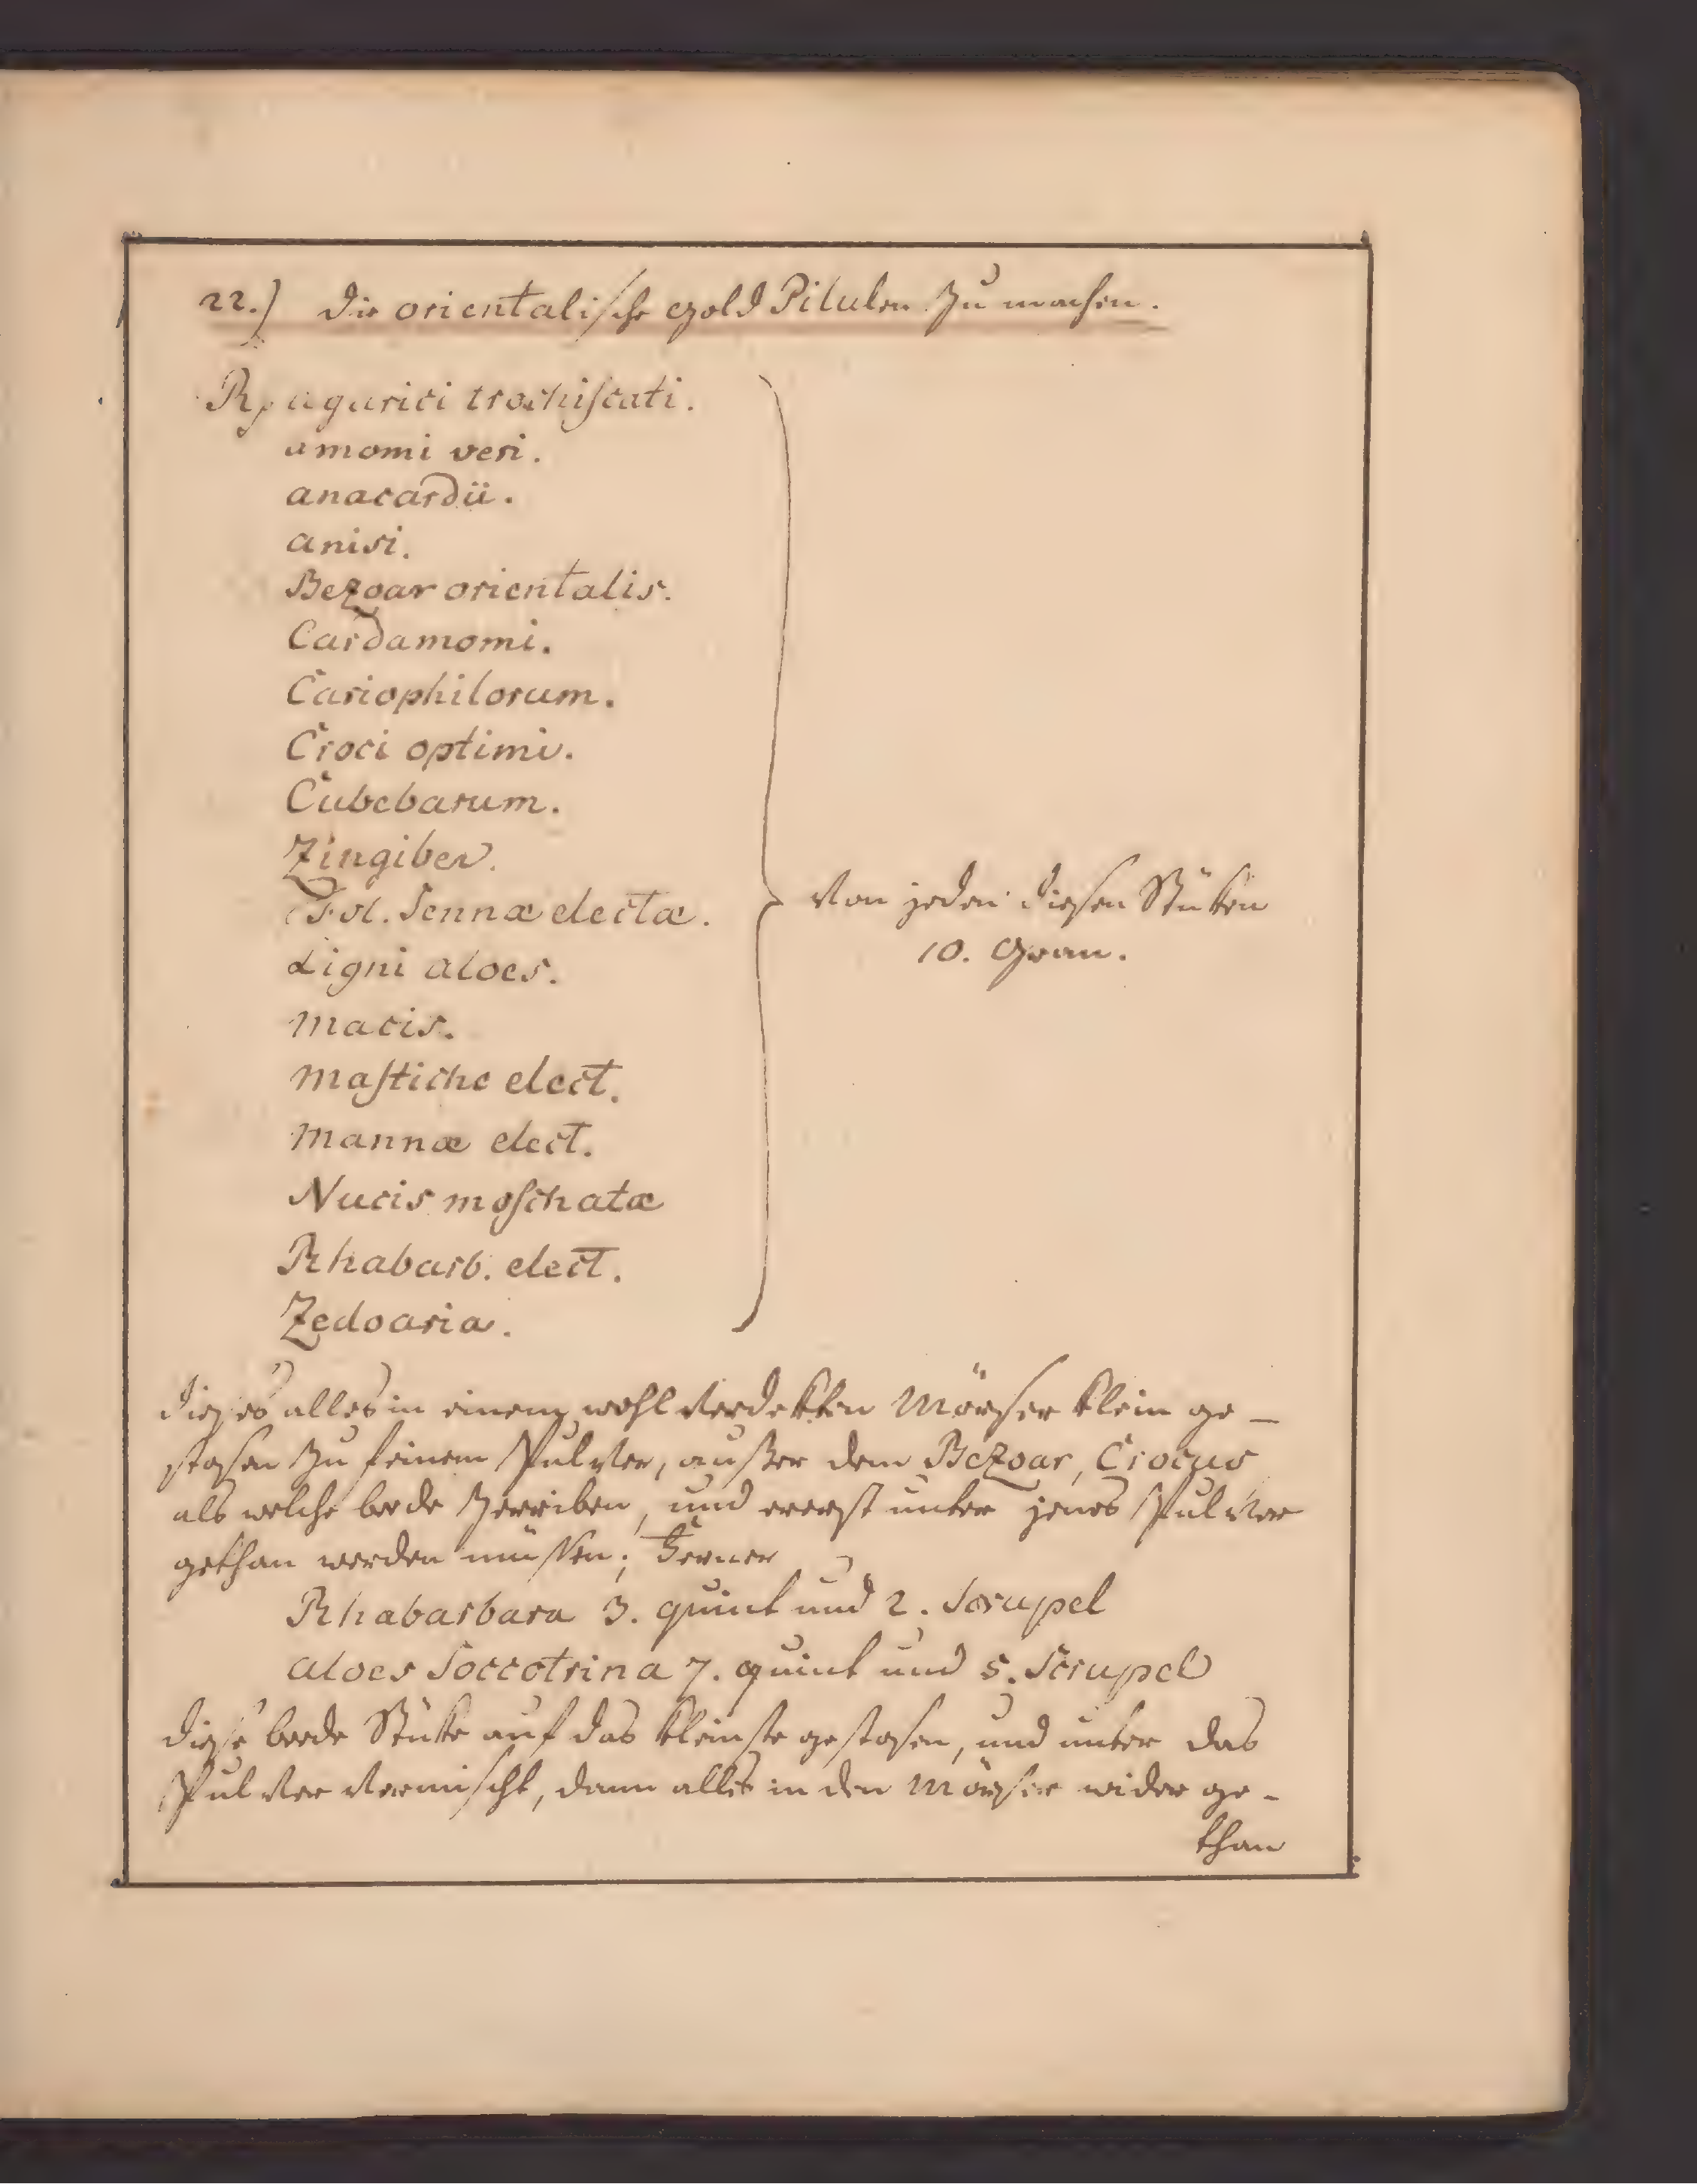 22.) Die orientalische Gold Pilulen zu machen.
Rp agarici trochiscati.
amomi veri.
anacardii.
anisi.
Bezoar orientalis.
Cardamomi.
Cariophilorum.
Croci optimi.
Cubebarum.
Zingiber.
Fol. Sennæ electæ.
Ligni aloes.
Macis.
Mastiche elect.
Mannæ elect.
Nucis moschatæ
Rhabarb. elect.
Zedoaria.
Von jeden diesen Stüken
10. Gran.
Dieses alles in einem wohl verdekten Mörser klein ge-
stosen zu feinem Pulver, außer dem Bezoar, Crocus
als welche beede zerriben, und ererst unter jenes Pulver
gethan werden müssen; Ferner
Rhabarbara 3. quint und 2. Scrupel
aloes Soccotrina 7. quint und 5. Scrupel
Diese beede Stüke auf das kleinste gestosen, und unter das
Pulver vermischt, dann alles in den Mörser wider ge-
than